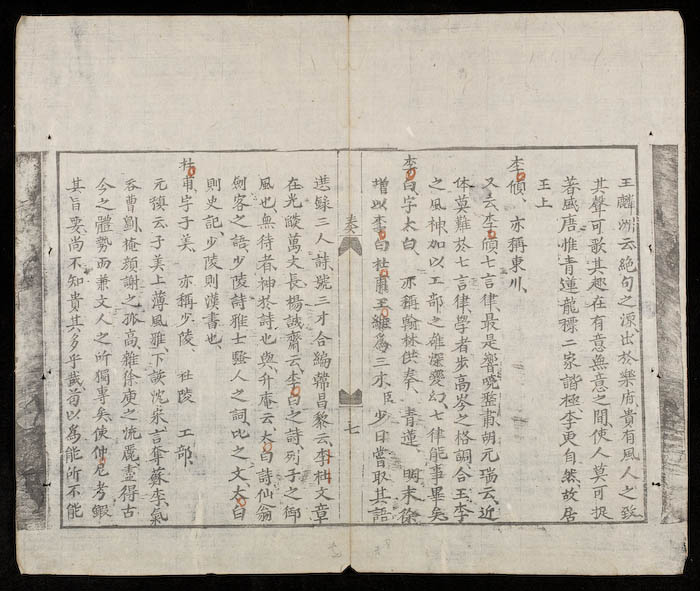 王麟洲云絕句之源出於樂府貴有風人之致
其聲可歌其趣在有意無意之間使人莫可捉
著盛唐惟青蓮龍標二家諧極李更自然故居
王上
李頎亦稱東川
又云李頎七言律最是響亮整肅胡元瑞云近
體莫難於七言律學者步高岑之格調合王李
之風神加以工部之雄深變幻七律能事畢矣
李白字太白亦稱翰林供奉青蓮明末徐
增以李白杜甫王維爲三才臣少日嘗取其語
選錄三人詩號三才合編韓昌黎云李杜文章
在光燄萬丈長楊誠齋云李白之詩列子之御
風也無待者神於詩也與升庵云太白詩仙翁
劍客之語少陵詩雅士騷人之詞比之文太白
則史記少陵則漢書也
杜甫字子美亦稱少陵杜陵工部
元稹云子美上薄風雅下該沈宋言奪蘇李氣
吞曹劉掩顏謝之孤高雜徐庾之流麗盡得古
今之體勢而兼文人之所獨專矣使仲尼考鍜
其旨要尚不知貴其多乎哉苟以爲能所不能
卷
七